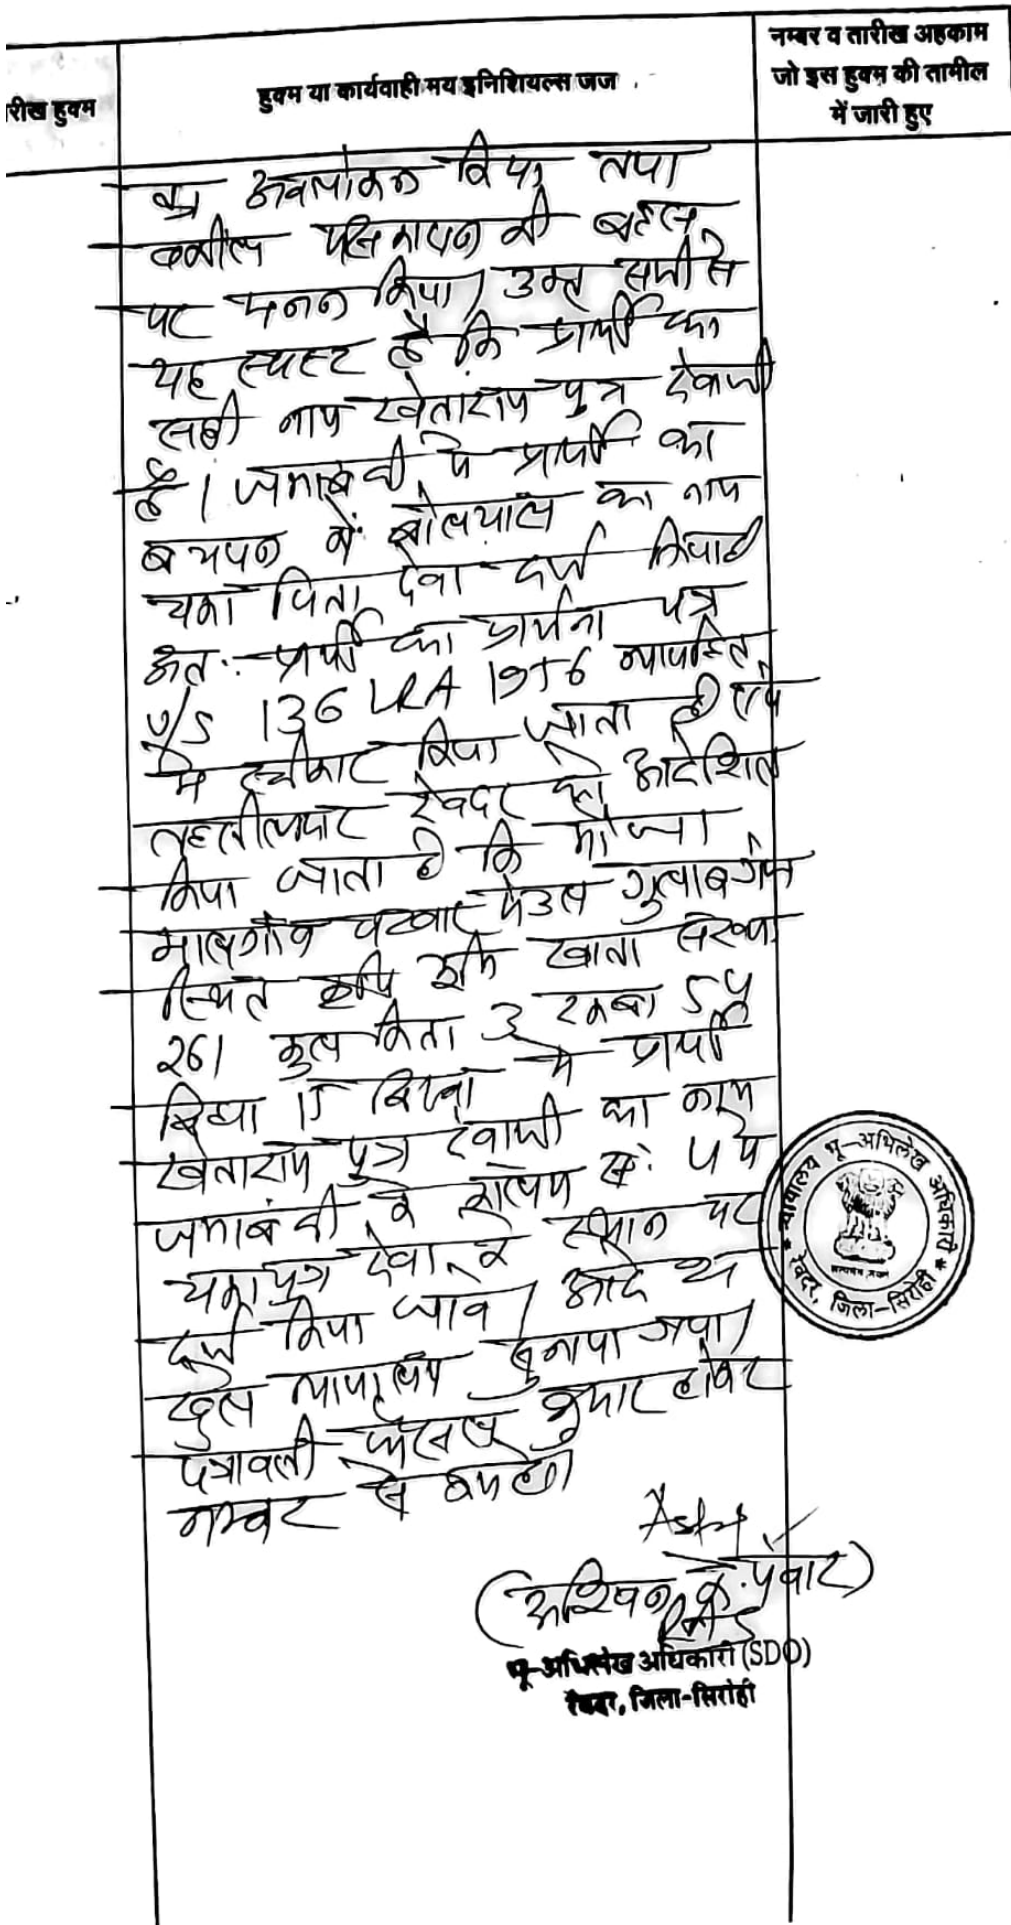 रीख हुक्म
हुक्म या कार्यवाही मय इनिशियल्स जज
नम्बर व तारीख अहकाम
जो इस हुक्म की तामील
में जारी हुए
का अवलोकन किया तथा
वकील की बहस
पर मनन किया। उक्त सभी से
यह स्पष्ट है कि प्रार्थी का
सही नाम खेताराम पुत्र देवाजी
है। जमाबंदी मे प्रार्थी का
बचपन में बोलचाल का नाम
चका पिता देवा दर्ज किया है
अतः प्रार्थी का प्रार्थना पत्र
U/S 136 LRA 1956 न्यायहित
मे स्वीकार किया जाता है एवं
तहसीलदार रेवदर को आदेशित
किया जाता है कि मौजा
मालगांव पटवार मंडल गुलाबगंज
स्थित कृषि भूमि खाता संख्या
261 कुल किता 3 रकबा 54
बिघा 15 बिस्वा मे प्रार्थी
खेताराम पुत्र देवाजी का नाम
जमाबंदी के कालम सं. 4 मे
चका पुत्र देवा के स्थान पर
दर्ज किया जावे। आदेश
खुले न्यायालय सुनाया गया।
पत्रावली फैसल शुमार होकर
नम्बर से कम हो।
(अश्विन के. पंवार)
भू-अभिलेख अधिकारी (SDO)
रेवदर, जिला-सिरोही
न्यायालय भू-अभिलेख अधिकारी
रेवदर, जिला-सिरोही